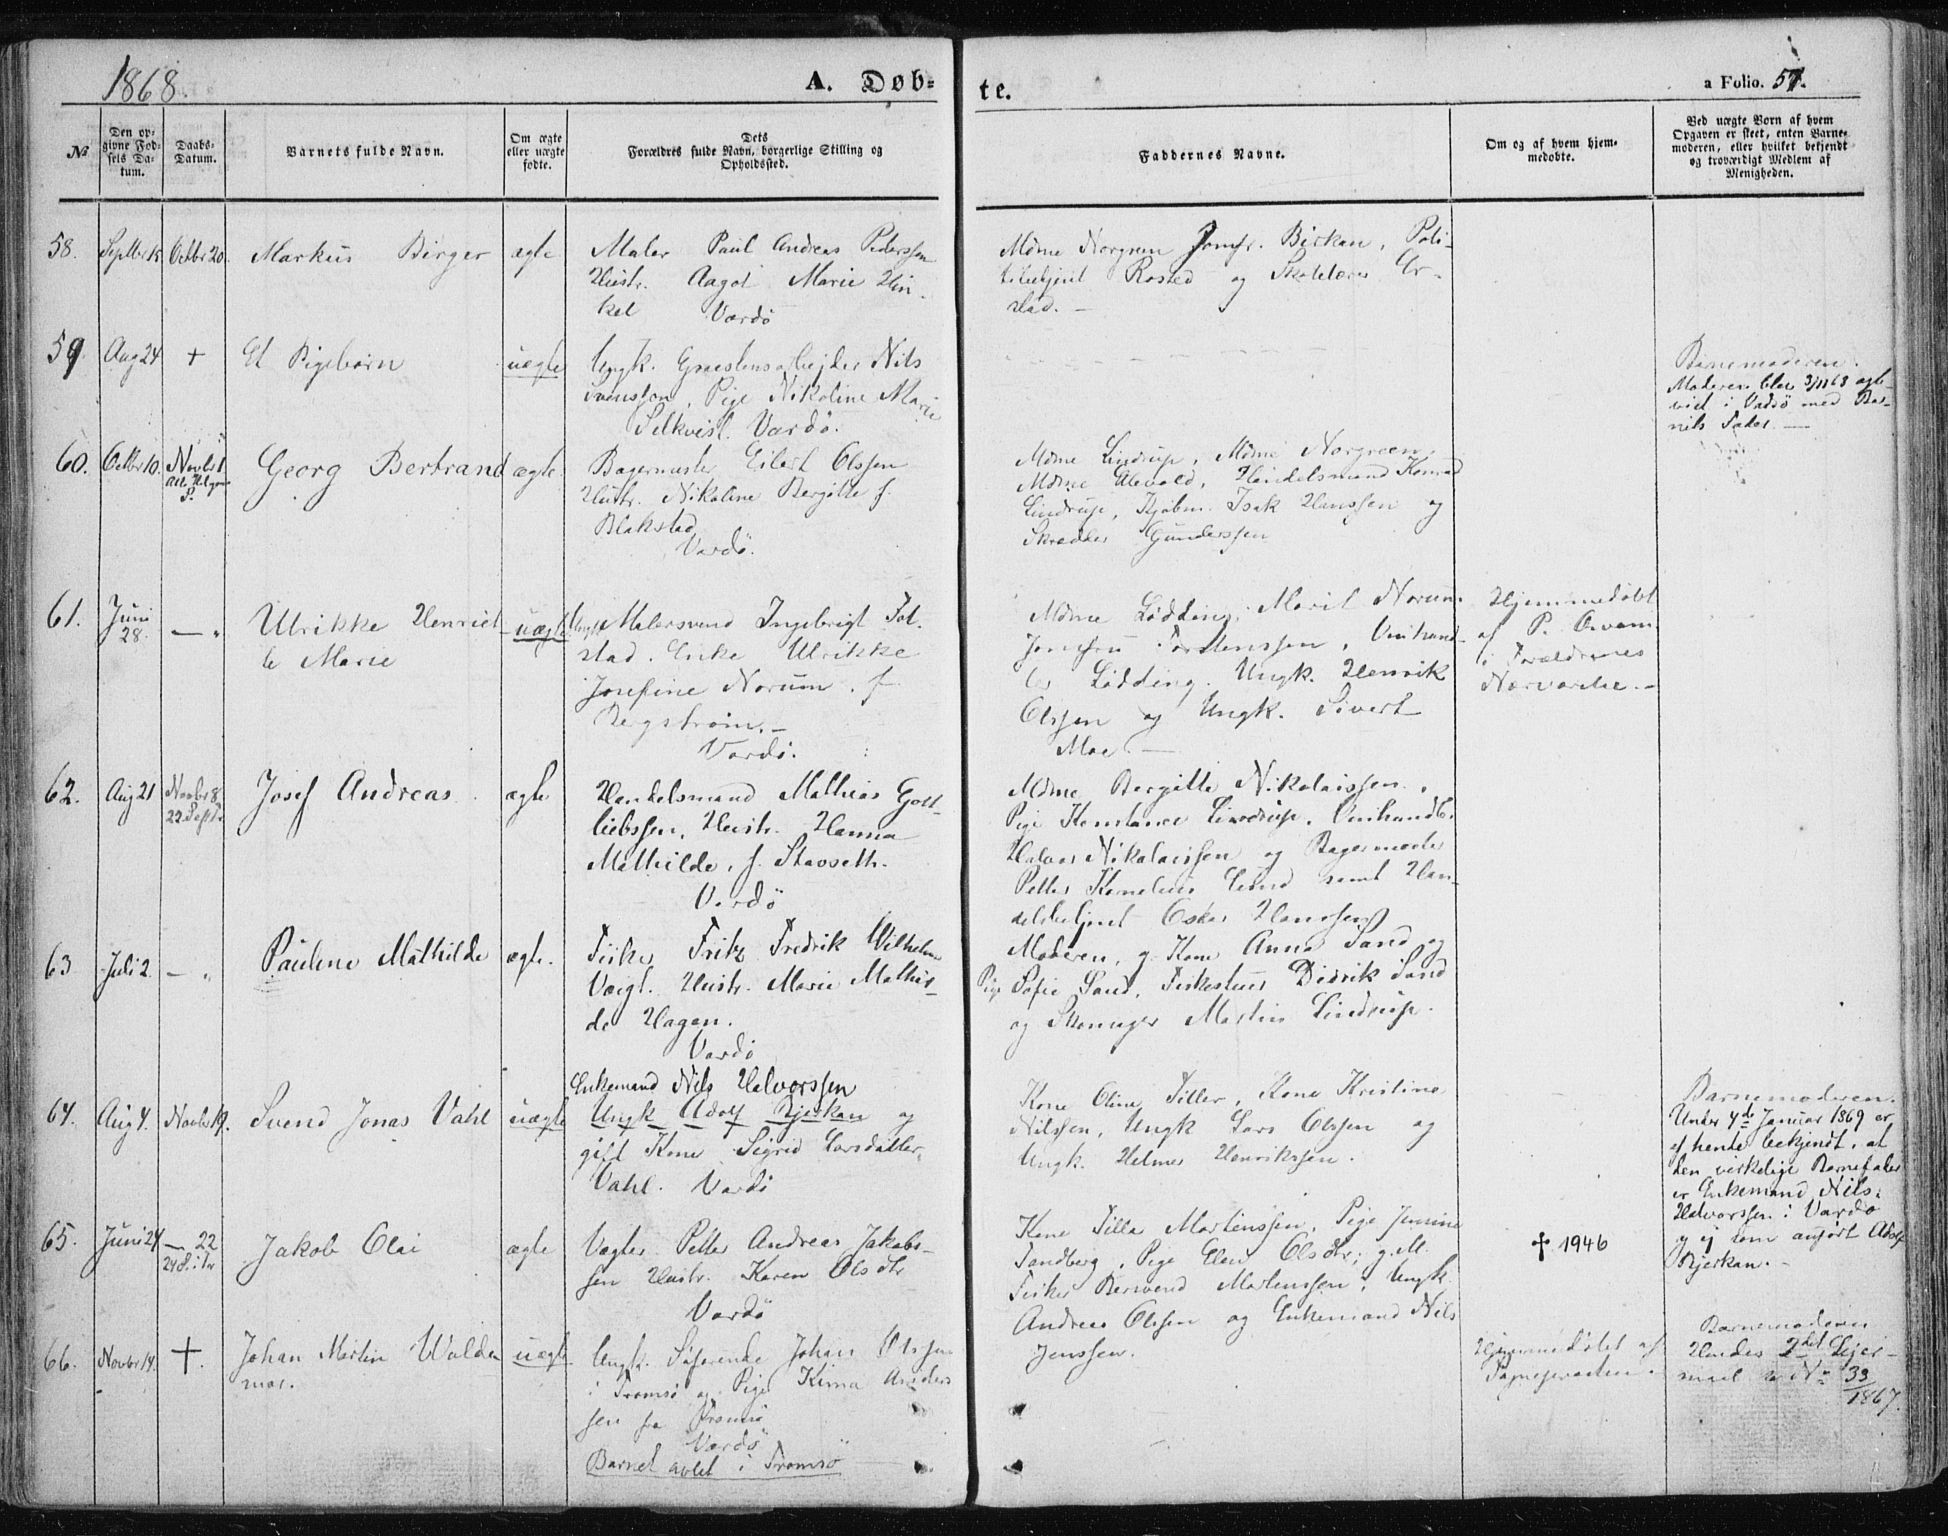 1868.
A. Døb-
te.
a Folio. 57.
№
Den op-
givne Fød-
sels Da-
tum.
Daabs-
Datum.
Barnets fulde Navn.
Om ægte
eller uægte
fødte.
Dets
Forældres fulde Navn, borgerlige Stilling og
Opholdssted.
Faddernes Navne.
Om og af hvem hjem-
medøbte.
Ved uægte Børn af hvem
Opgaven er skeet, enten Barne-
moderen, eller hvilket bekjendt
og troværdigt Medlem af
Menigheden.
58.
Octbr 20.
Markus Birger
ægte
Maler Paul Andreas Pederssen
Hustr. Aagot Marie Hin-
kel Vardö
Mdme Norgreen Jomfr. Birkan, Poli-
tibetjent Rosted og Skolelærer
stad. -
59
Aug 24
+
Et Pigebarn
uægte
Ungk. Graastensarbejder Nils
Svenssøn, Pige Nikoline Marie
Selkvist. Vardö.
Barnemoderen.
Moderen blev 3/11 68 ægte-
viet i Vadsö med Bar-
nets Fader. -
60.
Octbr 10.
Novbr 1
Alle Helgen
Georg Bertrand
ægte
Bagermester Eilert Olssen
Hustr. Nikoline Bergitte f.
Blakstad
Vardö.
Mdme Lindrup, Mdme Norgreen,
Mdme Alevold, Handelsmand Konrad
Lindrup, Kjøbm. Isak Hanssen og
Skrædder Gunderssen
61.
Juni
28.
- "
Ulrikke Henriet-
te Marie
uægte
Ungk Malersvend Ingebrigt Fol-
stad. Enke Ulrikke
Josefine Norum, f.
Bergstrøm. -
Vardö.
Mdme Lødding, Marit Norum,
Jomfru Torstenssen, Vinhand-
ler Lødding. Ungk. Henrik
Olssen og Ungk. Sivert
Moe. -
Hjemmedøbt
af P. Qvam
i Forældrenes
Nærværelse. -
62.
Aug 21
Novbr 8
22
Josef Andreas
ægte
Handelsmand Mathias Gott-
liebssen, Hustr. Hanna
Mathilde, f. Stavseth.
Vardö
Mdme Bergitte Nikolaissen,
Pige Konstance Lindrup, Vinhandl.
Halvor Nikolaissen og Bagermester
Petter Kornelius Lund samt Han-
delsbetjent Oskar Hanssen
63
Juli 2.
- "
Pauline Mathilde
ægte.
Fisker Fritz Fredrik Wilhelm
Voigt. Hustr. Marie Mathil-
de Hagen.
Vardö
Moderen, g. Kone Anna Sand og
Pige Sofie Sand, Didrik Sand
og Skomager Martin Lindrup.
64.
Aug 4.
Novbr 19.
Svend Jonas Vahl
uægte
Enkemand Nils Halvorssen
Ungk Adolf Bjerkan og
gift Kone Sigrid Larsdatter
Vahl. Vardö
Kone Oline Tiller, Kone Kristine
Nilssen, Ungk Lars Olssen og
Ungk. Helmer Henrikssen.
Barnemoderen.
Under 4de Januar 1869 er
af hende bekjendt, at
den virkelige Barnefader
er Enkemand Nils
Halvorssen i Vardö
og ej som anført Adolf
Bjerkan. -
65.
Juni 24
- 22
Jakob Olai
ægte
Vægter Petter Andreas Jakobs-
sen Hustr. Karen Olsdtr
Vardö
Kone Tilla Mortenssen, Pige Jensine
Sandberg, Pige Elen Olsdtr; g. M.
Fisker Bersvend Mortenssen, Ungk.
Andreas Olssen og Enkemand Nils
Jenssen.
† 1946
66.
Novbr 14.
+.
Johan Martin Walde-
mar.
uægte
Ungk. Søfarende Johan Olssen
i Tromsø og Pige Kima Anders-
sen fra Tromsø
Vardö
Barnet avlet i Tromsø
Hjemmedøbt af
Sognepræsten.
Barnemoderen
Hendes 2det Lejer-
maal No 33
1867.